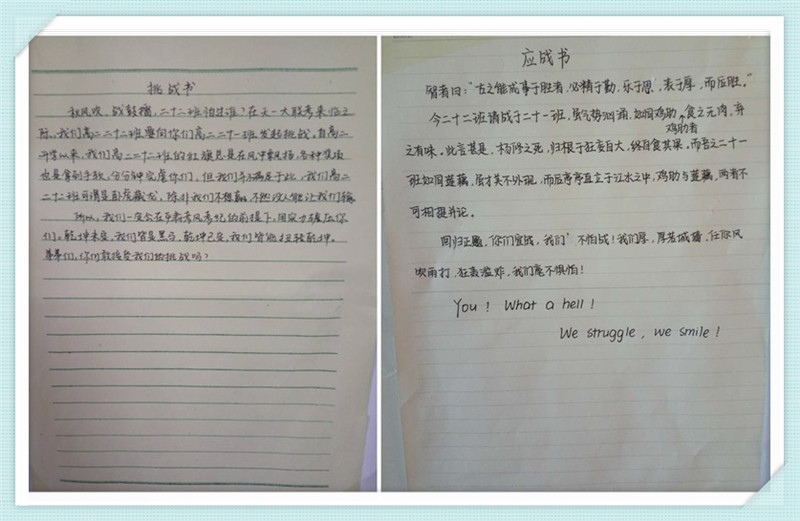 挑战书
秋风吹，战鼓擂，二十二班怕过谁？在天一大联考来临之
际，我们高二二十二班要向你们高二二十一班发起挑战。自高二
开学以来，我们高二二十二班的红旗总是在风中飘扬，各种奖项
也是拿到手软，分分钟完虐你们，但我们并不满足于此，我们高二
二十二班可谓是卧虎藏龙，除非我们不想赢，不然没人能让我们输
所以，我们一定会在严肃考风考纪的前提下，用实力碾压你
们。乾坤未定，我们皆是黑马，乾坤已定，我们皆能扭转乾坤。
弟弟们，你们敢接受我们的挑战吗？
应战书
智者曰：“古之能成事于胜者，必精于勤，乐于思，表于厚，而后胜。”
今二十二班请战于二十一班，虽气势汹涌，如同鸡肋，食之无肉，弃
鸡肋者
之有味。此言甚是，杨修之死，归根于狂妄自大，终自食其果。而吾之二十一
班如同莲藕，虽才华不外现，而后亭亭直立于污水之中，鸡肋与莲藕，两者不
可相提并论。
回归正题，你们宣战，我们不怕战！我们厚，厚若城墙，任你风
吹雨打，狂轰滥炸，我们毫不惧怕！
You！What a hell！
We struggle，we smile！